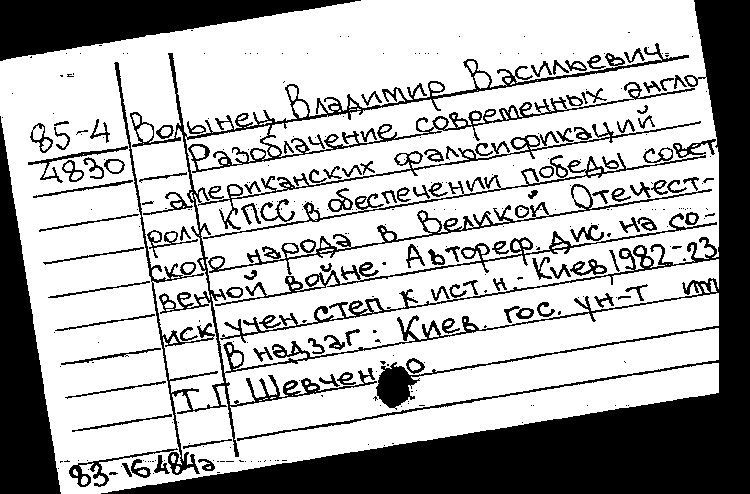 85-4 Волынец, Владимир Васильевич.
4830 Разоблачение современных англо-
- американских фальсификаций
роли КПСС в обеспечении победы совет-
ского народа в Великой Отечест-
венной войне. Автореф. дис. на со-
иск. учен. степ. к. ист. н. - Киев, 1982 - 23
В надзаг.: Киев. гос. ун-т им
Т.Г. Шевченко.
83-16484а